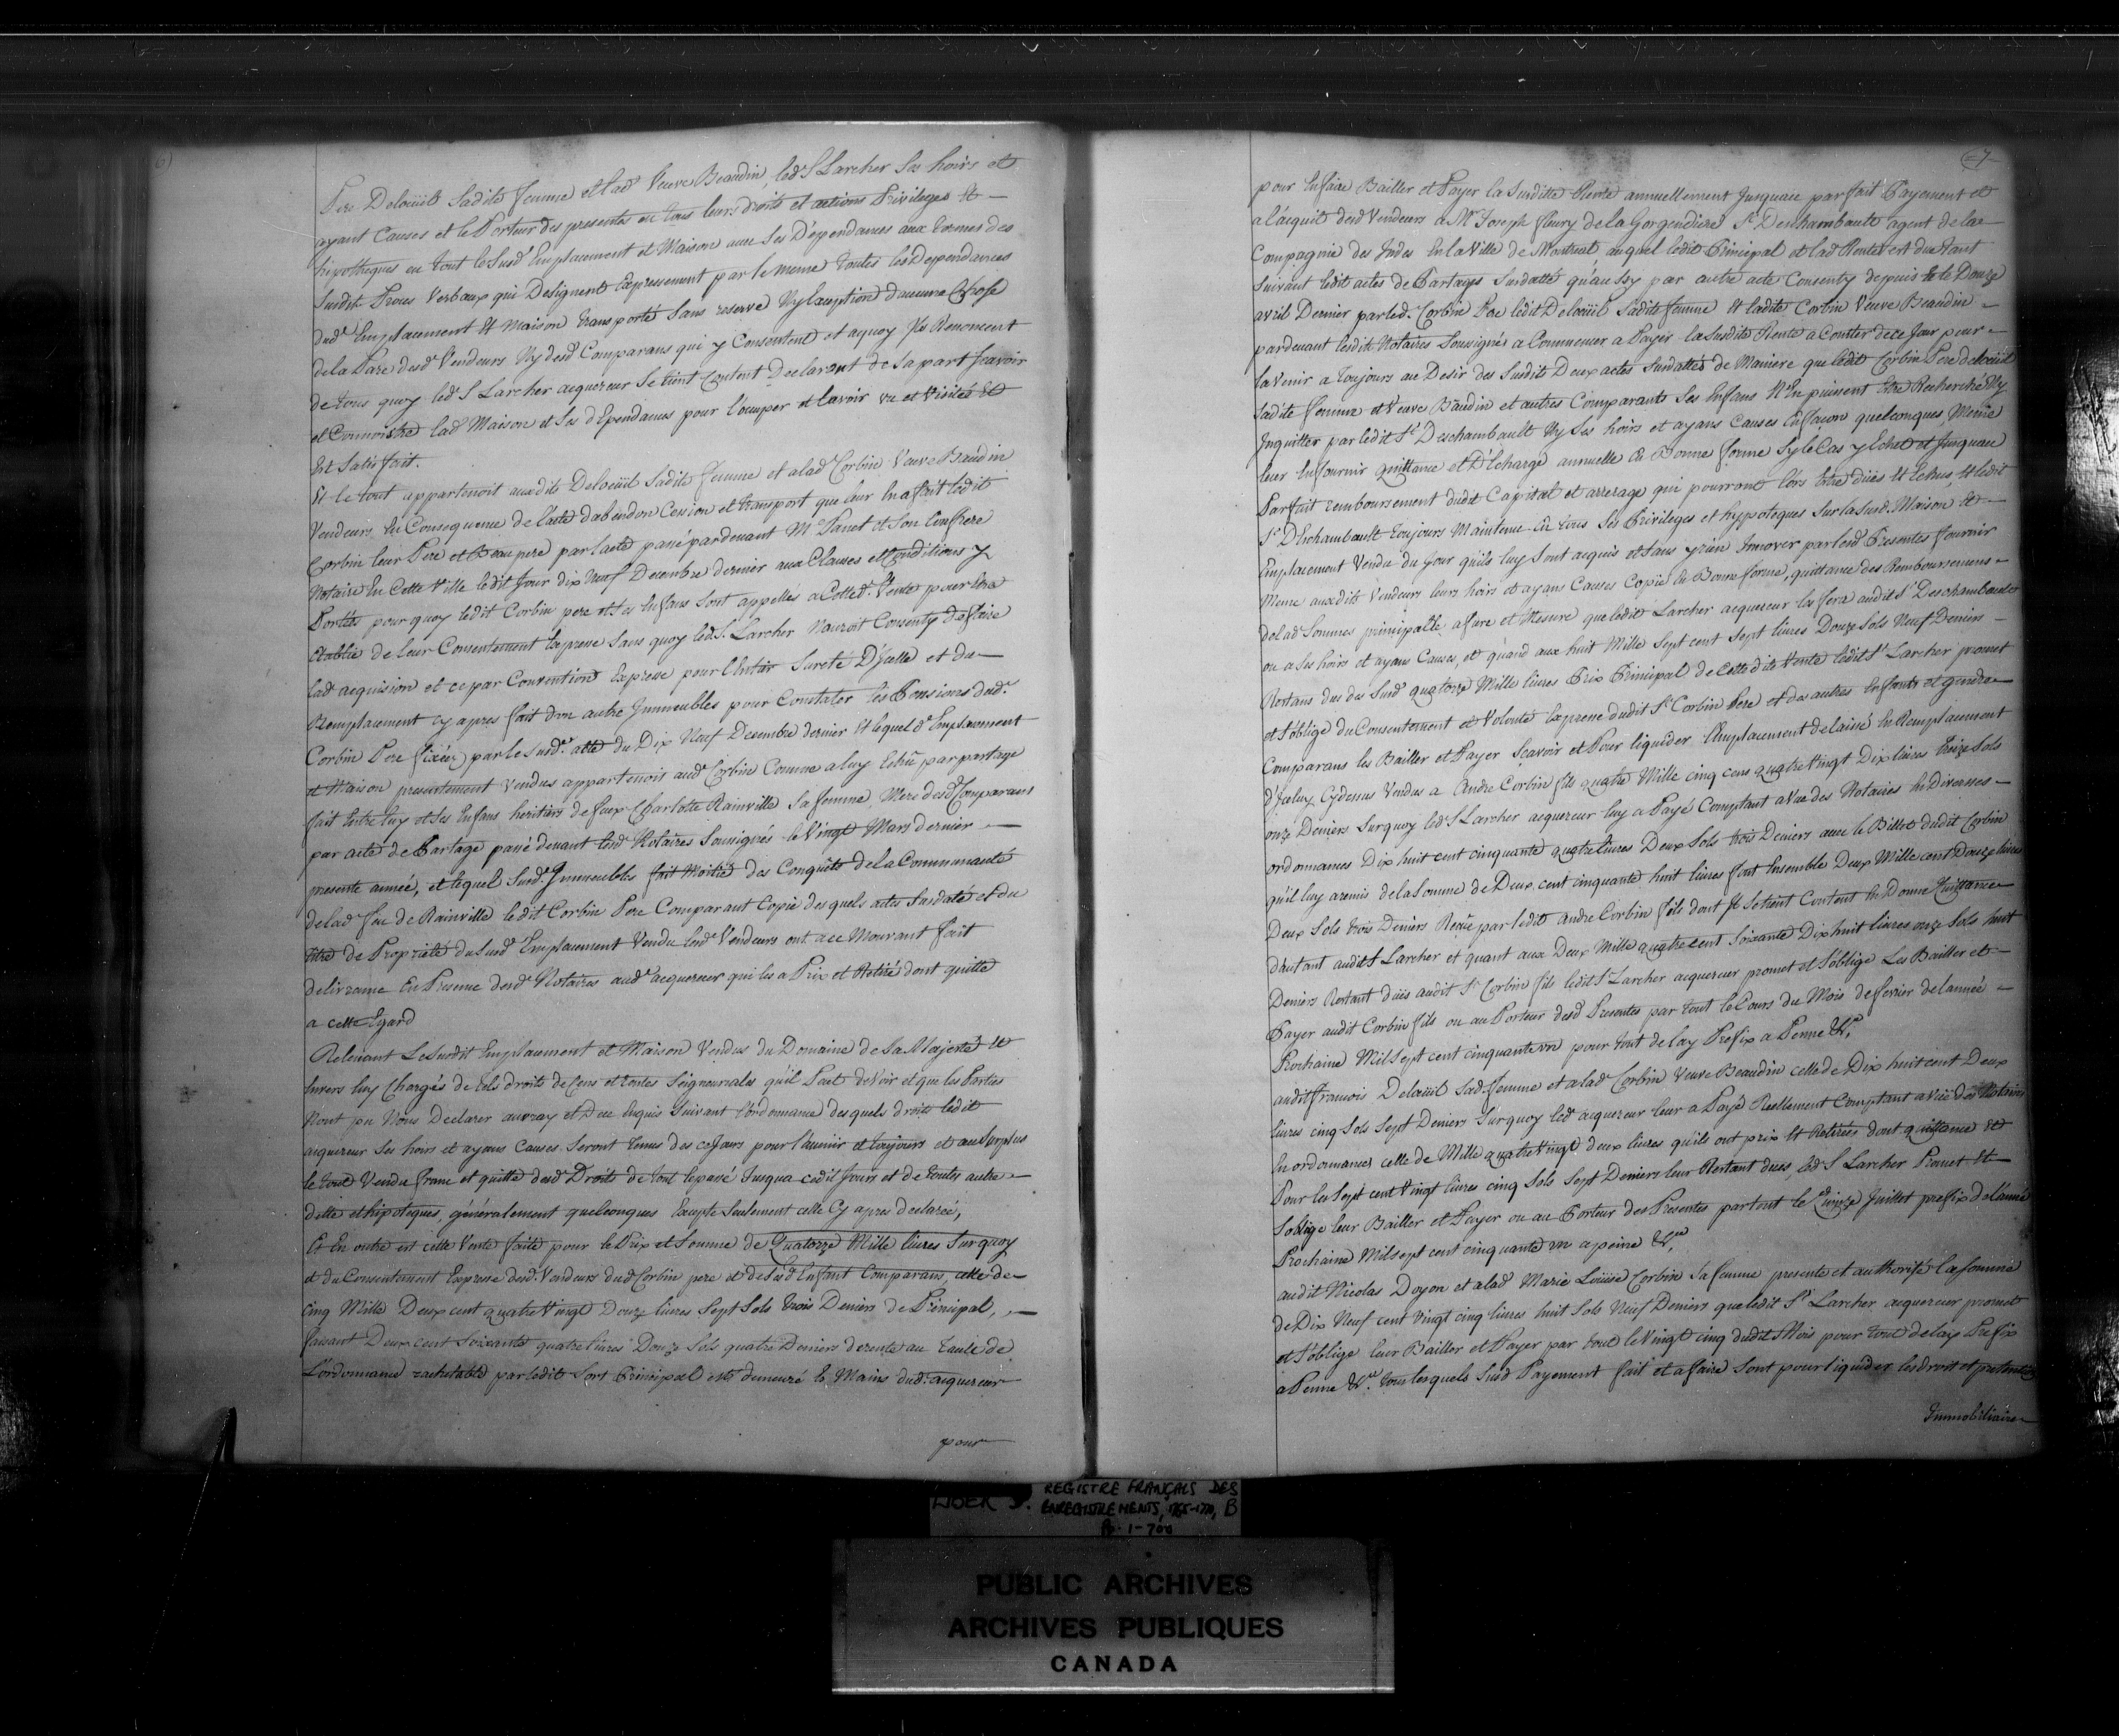 6)
Pere Deloeüil Sadite femme et lad<sup>e</sup> Veuve Beaudin, led<sup>t</sup> S<sup>r</sup> Larcher Ses hoirs et
ayant Causes et le Porteur des presentes en tous leurs droits et actions Privileges et
hipotheques en tout le Susd<sup>t</sup> Emplacement et Maison avec Ses Dépendances aux termes des
Susdits Proces Verbaux qui Designent Expressement par le meme toutes les Dependances
dud<sup>t</sup> Emplacement Et Maison transporté Sans reserve Ny Exception d'aucune Chose
de la Part desd<sup>ts</sup> Vendeurs Ny desd<sup>ts</sup> Comparans qui y Consentent et a quoy Ils Renoncent
de tous quoy led<sup>t</sup> S<sup>r</sup> Larcher acquereur Se tient Content Declarant de Sa part Scavoir
et Connoistre lad<sup>e</sup> Maison et Ses dEpendances pour l'occuper et lavoir vu et Visités Et
Est Satisfait.
Et le tout appartenoit auxdits Deloeüil Sadite femme et a lad<sup>e</sup> Corbin Veuve Baudin
Vendeurs En Consequence de l'acte dabendon Cession et transport que leur En a fait ledit
Corbin leur Pere et Beaupere par lacte passé pardevant M<sup>e</sup> Panet et Son Confrere
Notaire En Cette Ville ledit Jour dix Neuf Decembre dernier aux Clauses et Conditions y
Portées pour quoy ledit Corbin pere et Ses Enfans Sont appellés a Cette d<sup>e</sup> Vente pour Etre
Etablie de leur Consentement Expresse Sans quoy led<sup>t</sup> S<sup>r</sup> Larcher Nauroit Consenty de faire
lad<sup>e</sup> acquision et ce par Convention Expresse pour l'Entier Sureté D'Icelle et du
Remplacement cy apres fait d'un autre Immeubles pour Constater les Pensions dud<sup>t</sup>
Corbin Pere fixées par le Susd<sup>t</sup> acte du Dix Neuf Decembre dernier Et lequel d<sup>t</sup> Emplacement
et Maison presentement Vendues appartenoit aud<sup>t</sup> Corbin Comme a luy Echû par partage
fait Entre luy et Ses Enfans heritiers de feux Charlotte Rainville Sa femme, Mere desd<sup>ts</sup> Comparans
par acte de Partage passé devant lesd<sup>ts</sup> Notaires Soussignés le Vingt Mars dernier
presente année, et lequel Susd<sup>t</sup> Immeubles fait Moitié des Conquêts de la Communauté
de lad<sup>e</sup> feu de Rainville ledit Corbin Pere Comparant Copie des quels actes Susdaté et du
titre de Proprieté du Susd<sup>t</sup> Emplacement Vendu lesd<sup>ts</sup> Vendeurs ont a ce Mouvant fait
delivrance En Presence desd<sup>ts</sup> Notaires aud<sup>t</sup> acquereur qui les a Prix et Retiré dont quitte
a cette Egard
Relevant Le Susdit Emplacement et Maison Vendus du Domaine de Sa Majesté Et
Envers luy Chargés de tels droits de Cens et rentes Seigneuriales qu'il Peut devoir et que les Parties
Nont pu Nous Declarer au vray et De ce Enquis Suivant l'ordonnance desquels droits ledit
acquereur Ses hoirs et ayans Causes Seront tenus des ce Jours pour l'avenir et toujours et au Surplus
le tout Vendu franc et quitte desd<sup>ts</sup> Droits de tout le passé Jusqua cedit Jours et de toutes autre
dette et hipoteques, généralement quelconques Excepté Seulement celle Cy apres declarée,
Et En outre est cette Vente faite pour le Prix et Somme de Quatorze Mille livres Surquoy
et du Consentement Expresse desd<sup>ts</sup> Vendeurs dud<sup>t</sup> Corbin pere et de Sesd<sup>ts</sup> Enfant Comparans, celle de
Cinq Mille Deux cent quatre Vingt Douze livres Sept Sols trois Deniers de Principal,
faisant Deux cent Soixante quatre livres Douze Sols quatre Deniers de rente au taule de
L'ordonnance rachetable par ledit Sort Principal est demeuré Es Mains dud<sup>t</sup> acquereur
pour
7
pour En faire Bailler et Payer la Susditte Rente annuellement Jusquau parfait Payement et
a l'acquit desd<sup>ts</sup> Vendeurs a M<sup>r</sup> Joseph fleury de la Gorgendiere S<sup>r</sup> Deschambault agent de la
Compagnie des Indes En la Ville de Montreal auquel ledit Principal et lad<sup>e</sup> Rente est due tant
Suivant ledit actes de Partages Susdatté qu'aussy par autre acte Consenty depuis le Douze
avril Dernier par led<sup>t</sup> Corbin Pere ledit Deloeüil Sadite femme Et ladite Corbin Veuve Beaudin
pardevant lesdits Notaires Soussignés a Commencer a Payer la Susdite Rente a Conter de ce Jour pour
lavenir a toujours au Desir des Susdits Deux actes Susdattés de Maniere que ledit Corbin Pere deloeüil
Sadite femme et Veuve Baudin et autres Comparants Ses Enfans N'En puissent Etre Recherché Ny
Inquitter par ledit S<sup>r</sup> Deschambault Ny Ses hoirs et ayans Causes En façon quelconques, Meme
leur En fournir quittance et Décharge annuelle En Bonne forme Sy le Cas y Echet et Jusquau
Parfait remboursement dudit Capital et arrerage qui pourront lors Etre düës Et Echus, Et ledit
S<sup>r</sup> DEschambault toujours Maintenu En tous Ses Privileges et hypoteques Sur la Susd<sup>e</sup> Maison Et
Emplacement Vendu du Jour qu'ils luy Sont acquis et Sans y rien Innover par lesd<sup>es</sup> Presentes fournir
Meme auxdits Vendeurs leurs hoirs et ayans Causes Copie En Bonne forme, quittance des Remboursemens
de lad<sup>e</sup> Sommes principalle a fure et Mesure que ledit Larcher acquereur les fera audit S<sup>r</sup> Deschambault
ou a Ses hoirs et ayans Causes, et quand aux huit Mille Sept cent Sept livres Douze Sols Neuf Deniers
Restans dus des Susd<sup>ts</sup> quatorze Mille livres Prix Principal de Cette dite Vente ledit S<sup>r</sup> Larcher promet
et S'oblige du Consentement et Volonté Expresse dudit S<sup>r</sup> Corbin Pere et des autres Enfants et gendre
Comparans les Bailler et Payer Scavoir et Pour liquider l'Emplacement delaissé En Remplacement
d'Jceluy Cydessus Vendus a Andre Corbin fils quatre Mille cinq cens quatre Vingt Dix livres treize Sols
onze Deniers Surquoy led<sup>t</sup> S<sup>r</sup> Larcher acquereur luy a Payé Comptant a Vue des Notaires En Diverses
ordonnances Dix huit cent cinquante quatre livres Deux Sols trois Deniers avec le Billet dudit Corbin
qu'il luy a remis de la Somme de Deux cent cinquante huit livres font Ensemble Deux Mille cent Douze livres
Deux Sols trois Deniers Reçue par ledit andre Corbin fils dont Il Se tient Content En Donne Quittance
d'autant audit S<sup>r</sup> Larcher et quant aux Deux Mille quatre cent Soixante Dix huit livres onze Sols huit
Deniers Restant düës audit S<sup>r</sup> Corbin fils ledit S<sup>r</sup> Larcher acquereur promet et S'oblige Les Bailler et
Payer audit Corbin fils ou au Porteur desd<sup>es</sup> Presentes par tout le Cours du Mois de fevrier de l'année
Prochaine Mil Sept cent cinquante un pour tout delay Prefix a Penne &<sup>a</sup>
audit francois Deloeüil Sad<sup>e</sup> femme et a lad<sup>e</sup> Corbin Veuve Beaudin celle de Dix huit cent Deux
livres cinq Sols Sept Deniers Surquoy led<sup>t</sup> acquereur leur a Payé Reellement Comptant a Vüe des Notaires
En ordonnances celle de Mille quatre Vingt deux livres qu'ils ont prix Et Retirées dont quittance Et
Pour les Sept cent Vingt livres cinq Sols Sept Deniers leur Restant dues, led<sup>t</sup> S<sup>r</sup> Larcher Promet Et
Soblige leur Bailler et Payer ou au Porteur des Presentes par tout le Quinze Juillet prefix de l'année
Prochaine Mil sept cent cinquante un a peine &<sup>a</sup>
audit Nicolas Doyon et a lad<sup>e</sup> Marie Loüise Corbin Sa femme presente et authorisé la Somme
de Dix Neuf cent Vingt cinq livres huit Sols Neuf Deniers que ledit S<sup>r</sup> Larcher acquereur promet
et S'oblige leur Bailler et Payer par tout le Vingt cinq dudit Mois pour tout delay Prefix
a Penne &<sup>a</sup> tous lesquels Susd<sup>ts</sup> Payement fait et a faire Sont pour liquider les droit et prétention
Immobiliaire
LIBER REGISTRE FRANÇAIS DES
ENREGISTREMENTS, 1765-1770, B
P. 1-700
PUBLIC ARCHIVES
ARCHIVES PUBLIQUES
CANADA